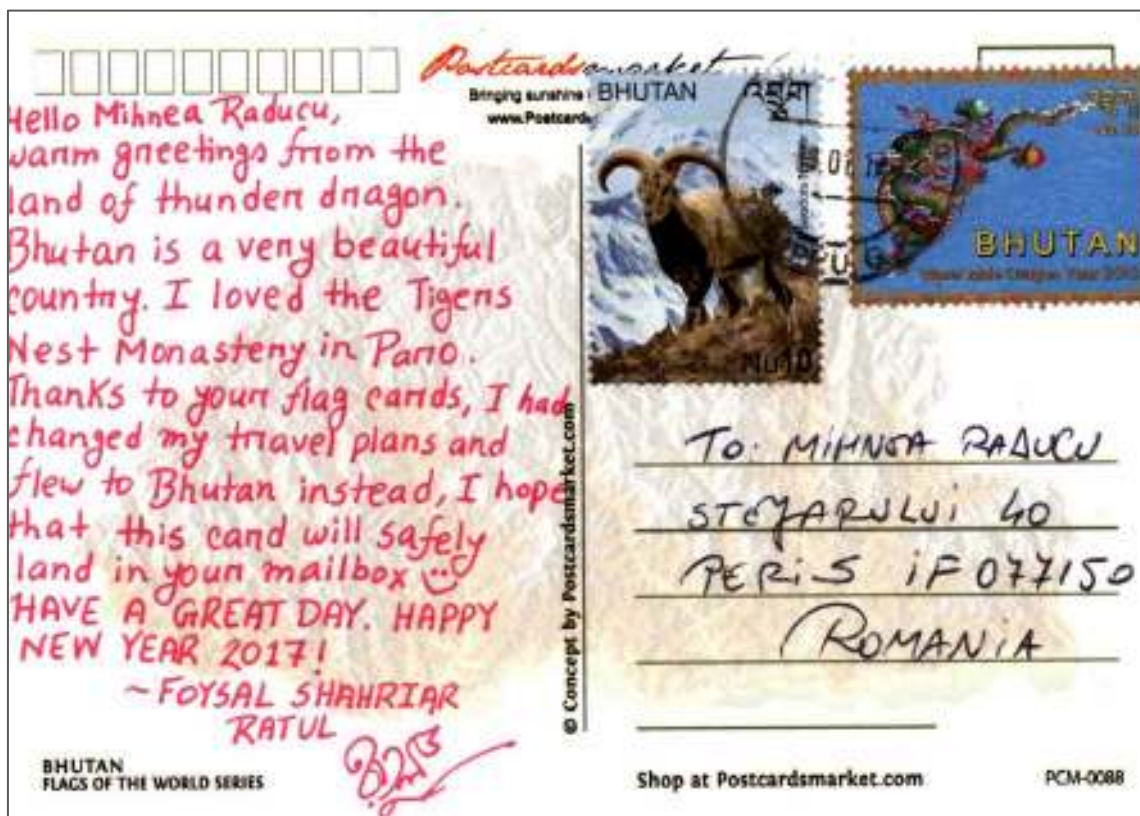 Postcardsmarket
Bringing sunshine
www.Postcard
BHUTAN འབྲུག
Nu10
BHUTAN
Hello Mihnea Raducu,
warm greetings from the
land of thunder dragon.
Bhutan is a very beautiful
country. I loved the Tigers
Nest Monastery in Paro.
Thanks to your flag cards, I had
changed my travel plans and
flew to Bhutan instead, I hope
that this card will safely
land in your mailbox
HAVE A GREAT DAY. HAPPY
NEW YEAR 2017!
~FOYSAL SHAHRIAR
RATUL
© Concept by Postcardsmarket.com
To: MIHNEA RADUCU
STEJARULUI 40
PERIS IF 077150
ROMANIA
BHUTAN
FLAGS OF THE WORLD SERIES
Shop at Postcardsmarket.com
PCM-0088